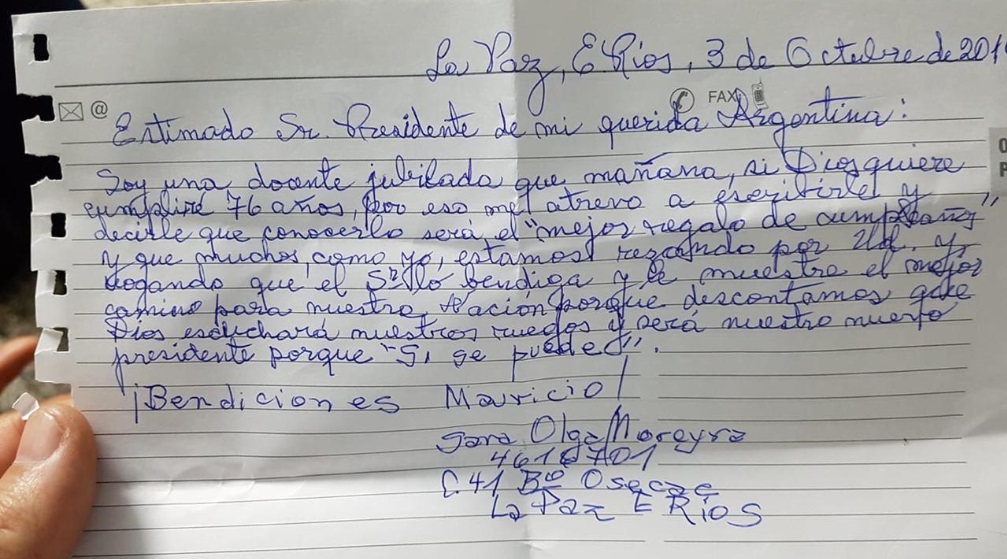 La Paz, E Ríos, 3 de Octubre de 201
@ FAX
Estimado Sr. Presidente de mi querida Argentina:
Soy una docente jubilada que mañana, si Dios quiere
cumpliré 76 años, por eso me atrevo a escribirle y
decirle que conocerlo será el "mejor regalo de cumpleaños"
y que muchos, como yo, estamos rezando por Ud. y
rogando que el Sr. lo bendiga y le muestre el mejor
camino para nuestra Nación porque descontamos que
Dios escuchará nuestros ruegos y será nuestro nuevo
presidente porque "Sí, se puede".
¡Bendiciones Mauricio!
Sara Olga Moreyra
C.41 Bº Osecac
La Paz E RIOS